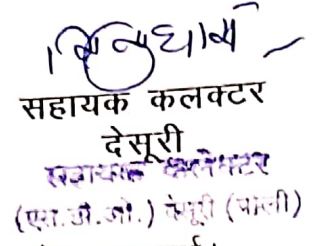 सहायक कलक्टर
देसूरी
सहायक कलेक्टर
(एस.डी.ओ.) देसूरी (पाली)